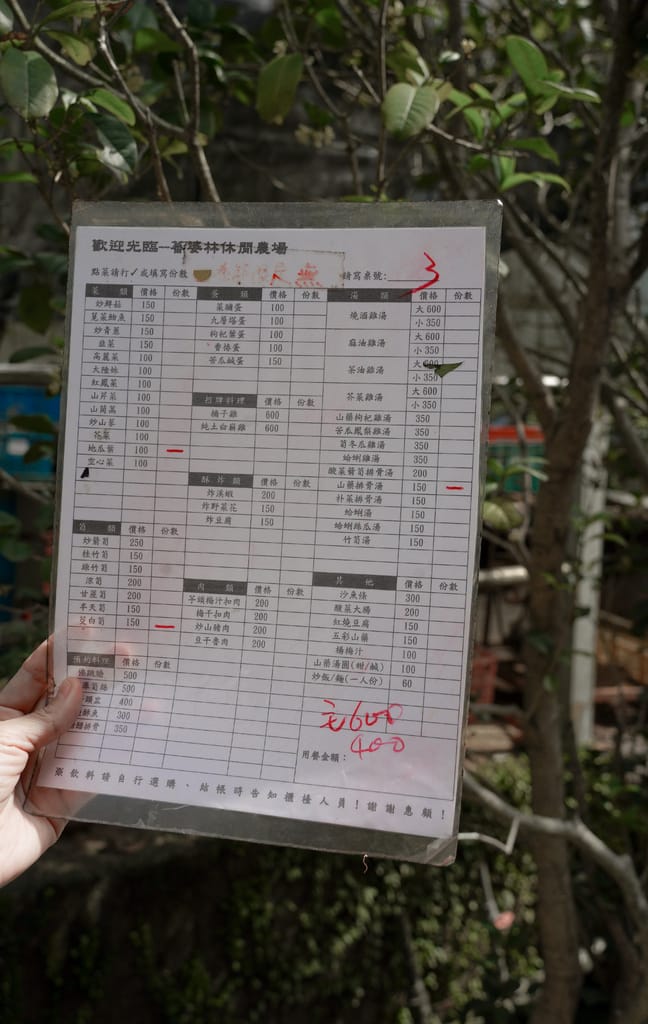 歡迎光臨--番婆林休閒農場
點菜請打✓或填寫份數
無
請寫桌號:
3
菜 類 價格 份數
炒鮮菇 150
莧菜魩魚 150
炒青蔥 150
韭菜 100
高麗菜 100
大陸妹 100
紅鳳菜 100
山芹菜 100
山茼蒿 100
炒山蘇 100
花菜 100
地瓜葉 100 一
空心菜 100
筍 類 價格 份數
炒箭筍 250
桂竹筍 150
綠竹筍 150
涼筍 200
甘蔗筍 200
半天筍 150
茭白筍 150 一
預約料理 價格 份數
佛跳牆 500
筍絲 500
400
酥魚 300
排骨 350
蛋 類 價格 份數
菜脯蛋 100
九層塔蛋 100
枸杞葉蛋 100
香椿蛋 100
苦瓜鹹蛋 150
招牌料理 價格 份數
桶子雞 600
純土白斬雞 600
酥炸類 價格 份數
炸溪蝦 200
炸野菜花 150
炸豆腐 150
肉 類 價格 份數
芋頭梅汁扣肉 200
梅干扣肉 200
炒山豬肉 200
豆干香肉 200
湯 類 價格 份數
燒酒雞湯 大600
小350
麻油雞湯 大600
小350
茶油雞湯 大600
小350
芥菜雞湯 大600
小350
山藥枸杞雞湯 350
苦瓜鳳梨雞湯 350
筍冬瓜雞湯 350
蛤蜊雞湯 350
酸菜箭筍排骨湯 200
山藥排骨湯 150 一
朴菜排骨湯 150
蛤蜊湯 150
蛤蜊絲瓜湯 150
竹筍湯 150
其 他 價格 份數
沙魚條 300
酸菜大腸 200
紅燒豆腐 150
五彩山藥 150
楊梅汁 100
山藥湯圓(甜/鹹) 100
炒飯/麵(一人份) 60
600
400
用餐金額：
飲料請自行選購、結帳時告知櫃檯人員！謝謝惠顧！